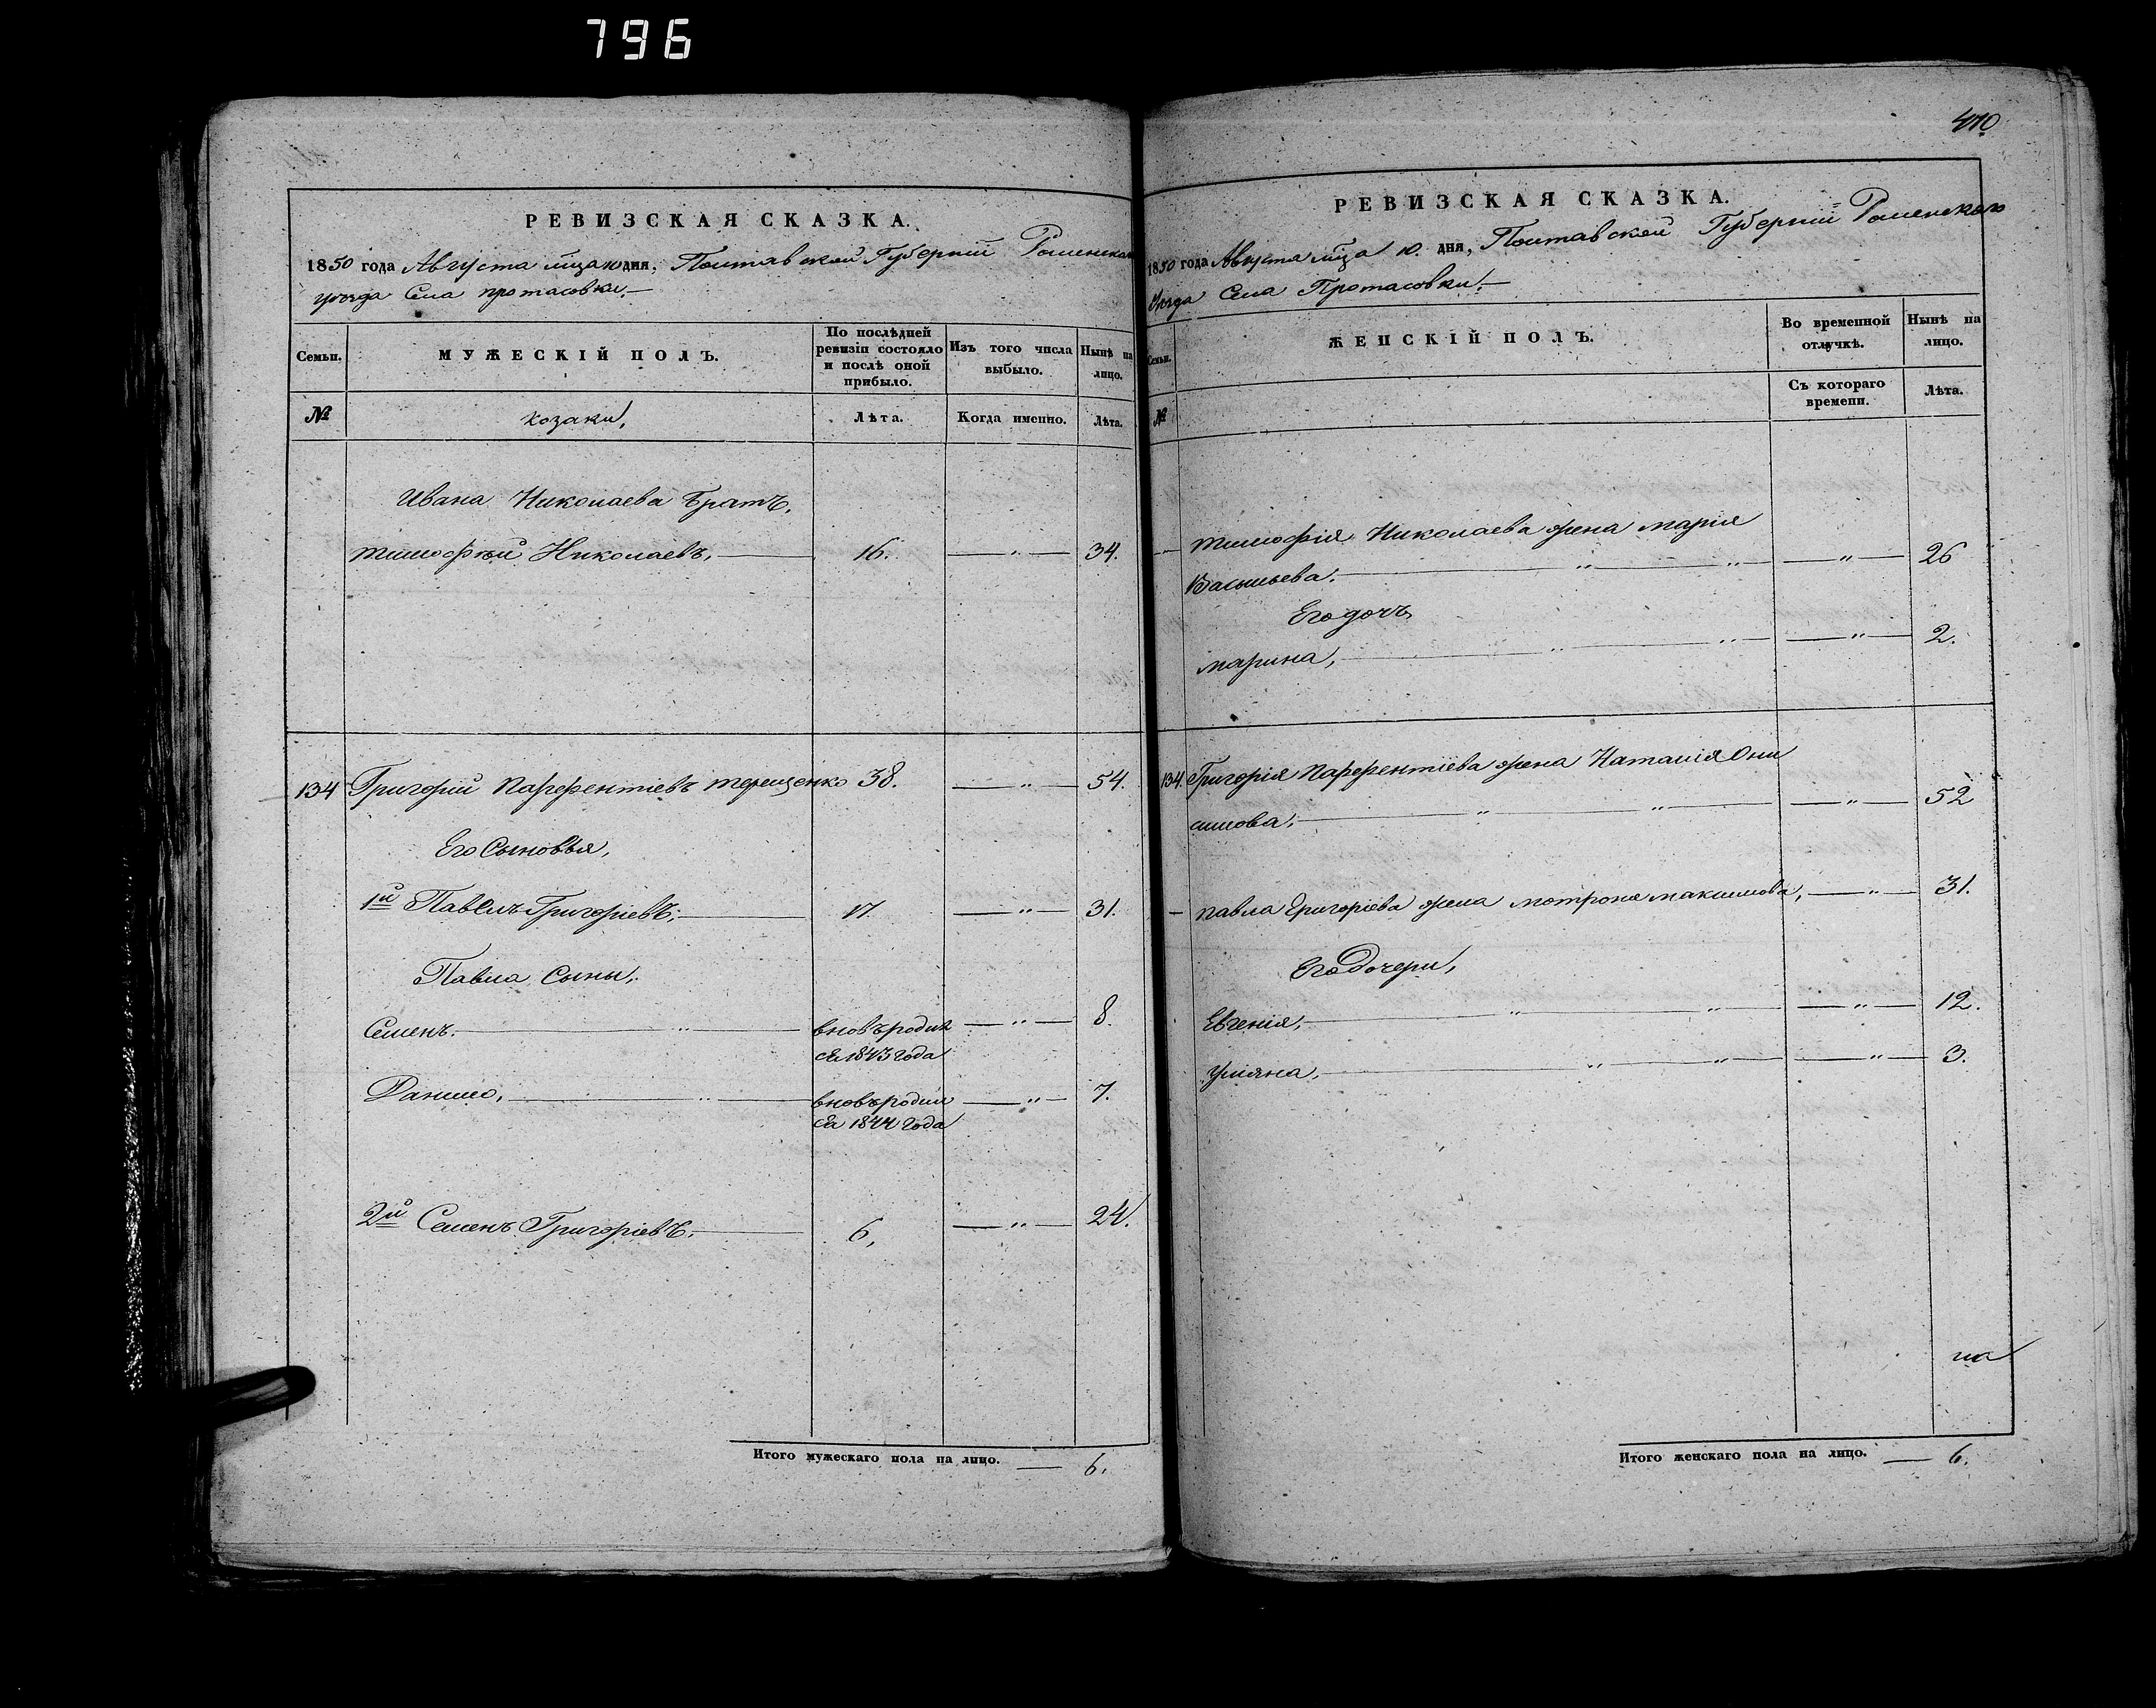 796
РЕВИЗСКАЯ СКАЗКА.
1850 года Августа мца 10 дня, Полтавской Губернии Роменскаго
уезда Села протасовки.
Семьи.
МУЖЕСКІЙ ПОЛЪ.
По послѣдней ревизіи состояло и послѣ оной прибыло.
Изъ того числа выбыло.
Нынѣ на лицо.
№
козаки,
Лѣта.
Когда именно.
Лѣта.
Ивана Николаева Братъ,
тимофѣй Николаевъ, 16. " 34.
134 Григорий Парфентіевъ терещенко 38. " 54.
Его Сыновья,
1й Павелъ Григоріевъ, 17. " 31.
Павла Сыны,
Семенъ. " вновъ родил " 8.
ся 1843 года
Данило, " вновъ родил " 7.
ся 1844 года
2й Семенъ Григоріевъ, 6, " 24.
Итого мужескаго пола на лицо. 6.
410
РЕВИЗСКАЯ СКАЗКА.
1850 года Августа мца 10. дня, Полтавской Губерніи Роменского
Уезда Села Протасовки.
Семьи.
ЖЕНСКІЙ ПОЛЪ.
Во временной отлучкѣ.
Нынѣ на лицо.
№
Съ котораго времени.
Лѣта.
тимофія Николаева жена мария
Васильева. " " " 26
Его дочъ,
марина, " " " 2.
134. Григорія Парфентіева жена Наталія Они
симова, " " " 52
павла Григоріева жена мотрона максимова, " 31.
Его Дочери,
Евгенія, " " " 12.
Уляна, " " " 3.
Итого женскаго пола на лицо. 6.